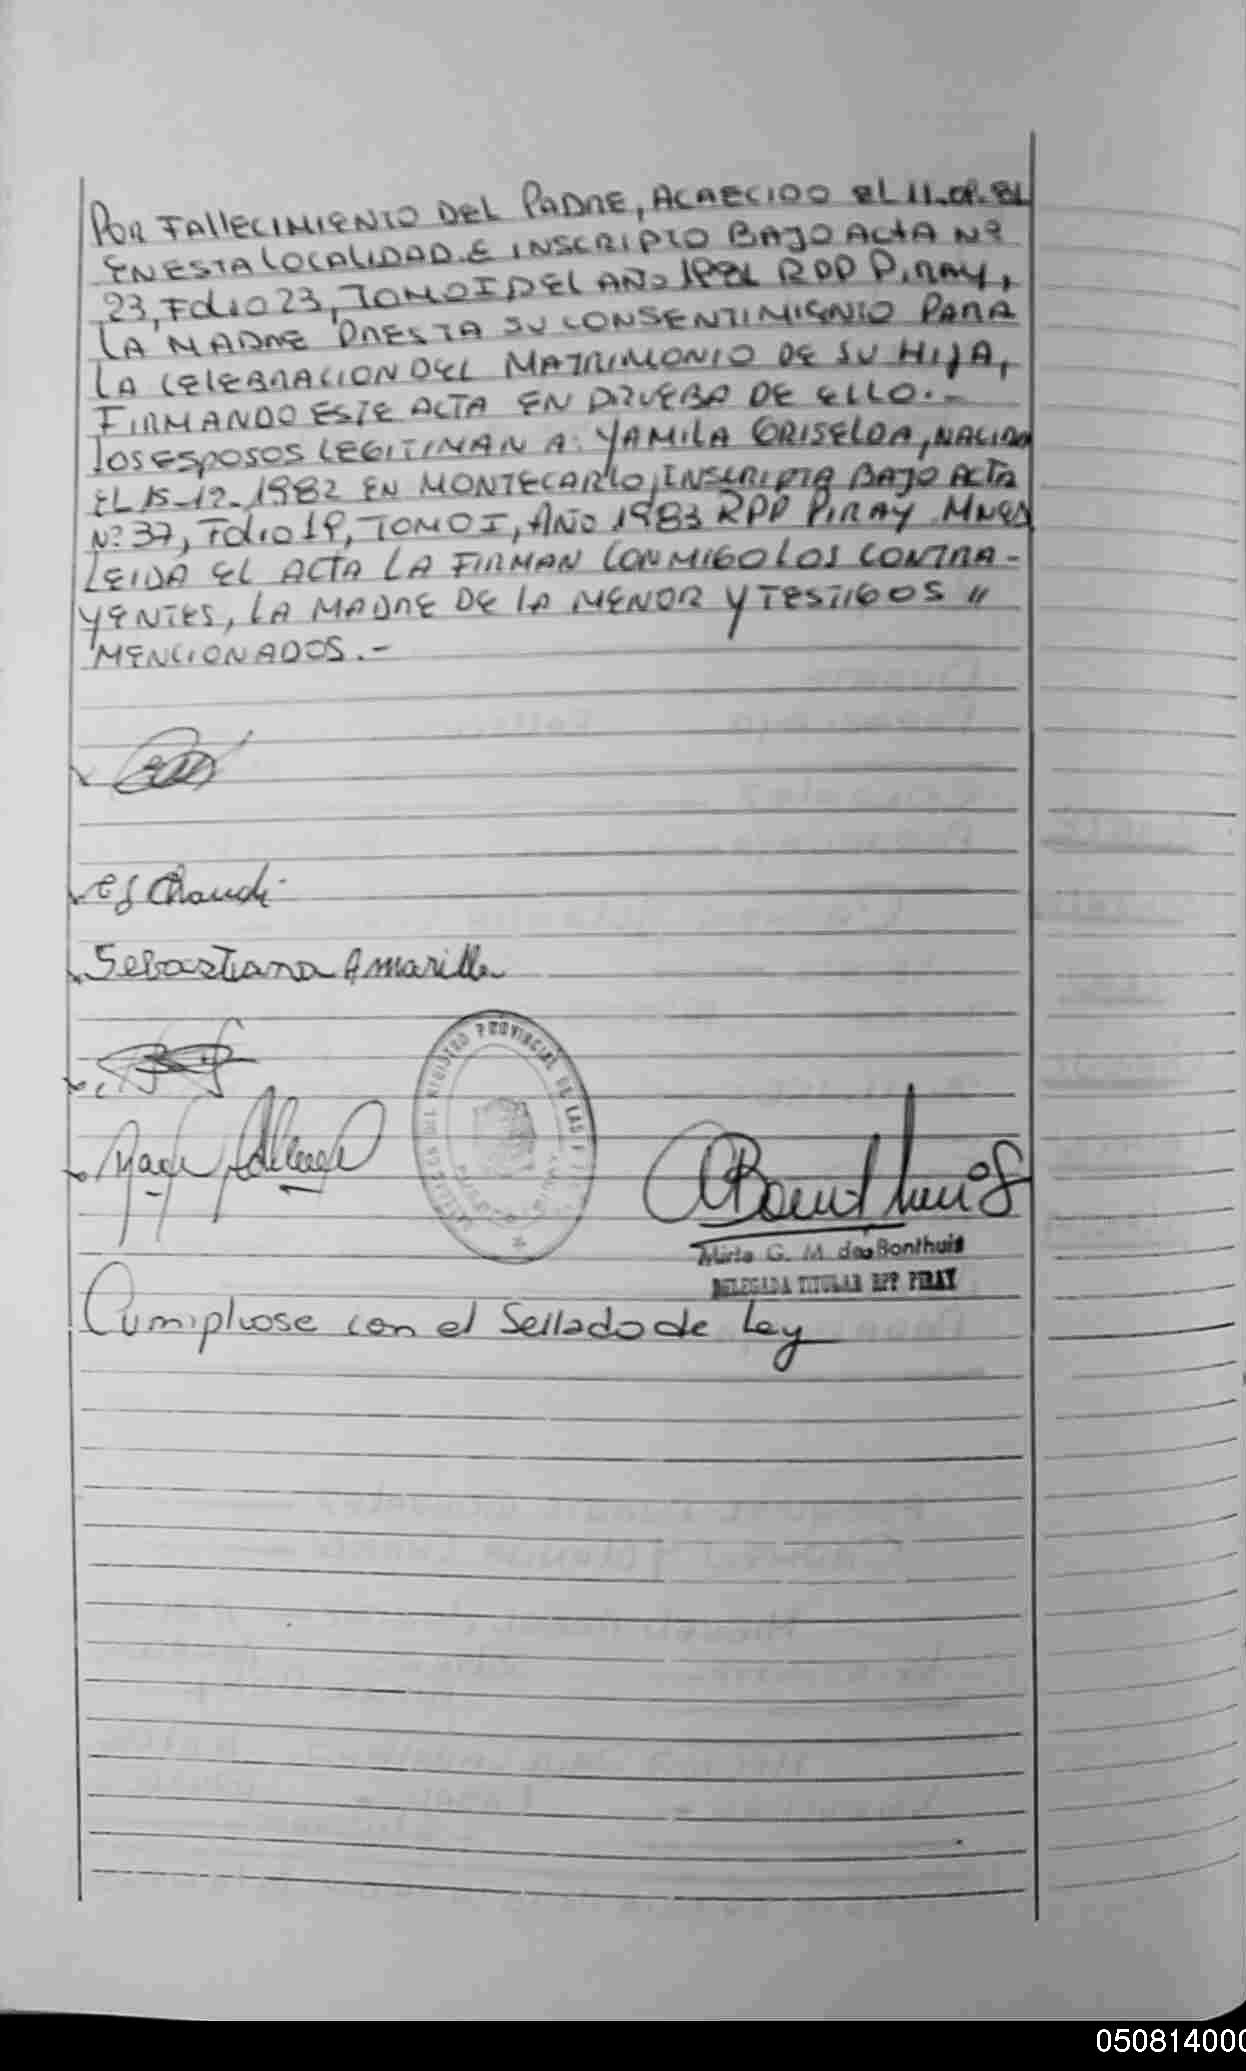 POR FALLECIMIENTO DEL PADRE, ACAECIDO EL 11-08-81
EN ESTA LOCALIDAD E INSCRIPTO BAJO ACTA Nº
23, FOLIO 23, TOMO I DEL AÑO 1981 RPP PIRAY,
LA MADRE PRESTA SU CONSENTIMIENTO PARA
LA CELEBRACION DEL MATRIMONIO DE SU HIJA,
FIRMANDO ESTE ACTA EN PRUEBA DE ELLO.-
LOS ESPOSOS LEGITIMAN A: YAMILA GRISELDA, NACIDA
EL 15-12-1982 EN MONTECARLO, INSCRIPTA BAJO ACTA
Nº 37, FOLIO 19, TOMO I, AÑO 1983 RPP PIRAY MNES
LEIDA EL ACTA LA FIRMAN CONMIGO LOS CONTRA-
YENTES, LA MADRE DE LA MENOR Y TESTIGOS "
MENCIONADOS.-
Sebastiana Amarilla
REGISTRO PROVINCIAL DE LAS
Mirta G. M. de Bonthuis
DELEGADA TITULAR RPP PIRAY
Cumpliose con el Sellado de Ley
050814000